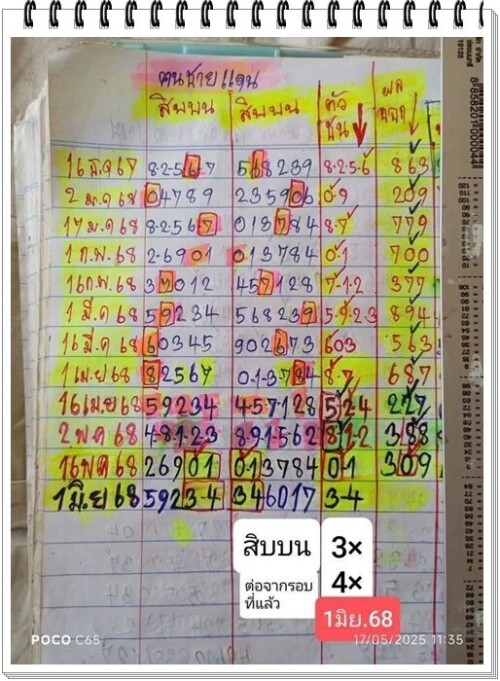 คนชายแดน
สิบบน สิบบน ตัวชน ผลออก
16 ธ.ค 67 8-2-567 568239 8-2-5-6 863
2 ม.ค 68 04789 235906 0-9 209
17 ม.ค 68 8-2-567 013784 8-7 779
1 ก.พ. 68 2-6901 013784 0-1 700
16 ก.พ. 68 37012 457128 7-1-2 377
1 มี.ค 68 59234 568239 5-9-2-3 894
16 มี.ค 68 60345 902673 603 563
1 เม.ย 68 82567 0-1-3784 8-7 687
16 เม.ย 68 59234 4-57-128 524 227
2 พ.ค 68 4-8-1-2-3 8-9-1-562 81-2 388
16 พ.ค 68 26901 0-13784 0-1 309
1 มิ.ย 68 5923-4 346017 3-4
สิบบน 3×
ต่อจากรอบที่แล้ว 4×
1มิย.68
POCO C65 17/05/2025 11:35